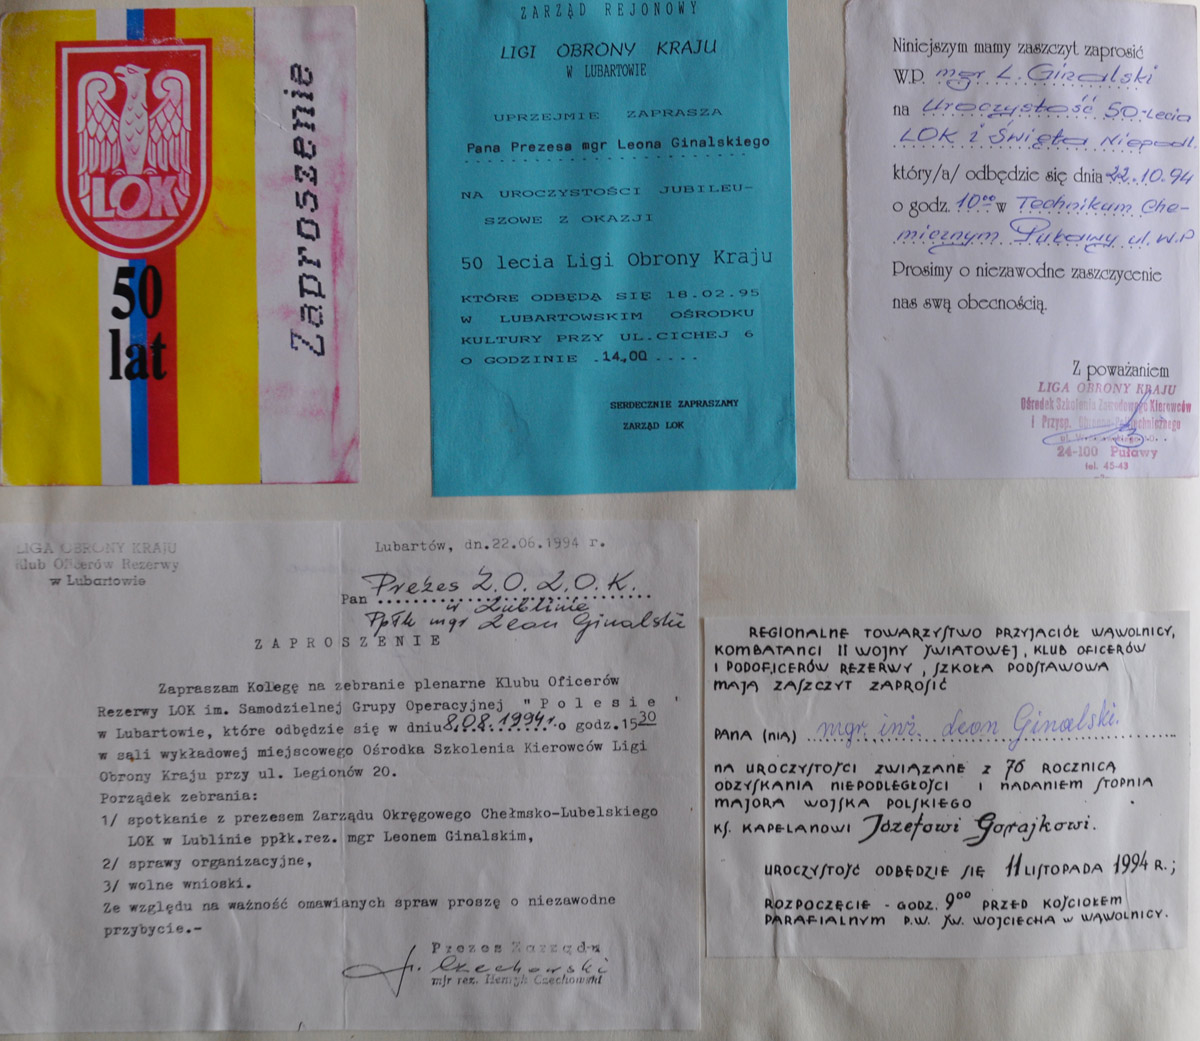 LOK
50
lat
Zaproszenie
ZARZĄD REJONOWY
LIGI OBRONY KRAJU
W LUBARTOWIE
UPRZEJMIE ZAPRASZA
Pana Prezesa mgr Leona Ginalskiego
NA UROCZYSTOŚCI JUBILEU-
SZOWE Z OKAZJI
50 lecia Ligi Obrony Kraju
KTÓRE ODBĘDĄ SIĘ 18.02.95
W LUBARTOWSKIM OŚRODKU
KULTURY PRZY UL.CICHEJ 6
O GODZINIE .14,00....
SERDECZNIE ZAPRASZAMY
ZARZĄD LOK
Niniejszym mamy zaszczyt zaprosić
W.P. mgr L. Ginalski
na Uroczystość 50-lecia
LOK i Święta Niepodl.
który/a/ odbędzie się dnia 22.10.94
o godz. 10⁰⁰ w Technikum Che-
micznym Puławy ul. W.P
Prosimy o niezawodne zaszczycenie
nas swą obecnością.
Z poważaniem
LIGA OBRONY KRAJU
Ośrodek Szkolenia Zawodowego Kierowców
i Przysp.
24-100 Puławy
tel. 45-43
LIGA OBRONY KRAJU
Klub Oficerów Rezerwy
w Lubartowie
Lubartów, dn.22.06.1994 r.
Pan Prezes Z.O. L.O.K.
w Lublinie
Ppłk mgr Leon Ginalski
ZAPROSZENIE
Zapraszam Kolegę na zebranie plenarne Klubu Oficerów
Rezerwy LOK im. Samodzielnej Grupy Operacyjnej "Polesie"
w Lubartowie, które odbędzie się w dniu 8.08.1994r. o godz.15³⁰
w sali wykładowej miejscowego Ośrodka Szkolenia Kierowców Ligi
Obrony Kraju przy ul. Legionów 20.
Porządek zebrania:
1/ spotkanie z prezesem Zarządu Okręgowego Chełmsko-Lubelskiego
LOK w Lublinie ppłk.rez. mgr Leonem Ginalskim,
2/ sprawy organizacyjne,
3/ wolne wnioski.
Ze względu na ważność omawianych spraw proszę o niezawodne
przybycie.-
Prezes Zarządu
H. Czechowski
mjr rez. Henryk Czechowski
REGIONALNE TOWARZYSTWO PRZYJACIÓŁ WĄWOLNICY,
KOMBATANCI II WOJNY ŚWIATOWEJ, KLUB OFICERÓW
I PODOFICERÓW REZERWY, SZKOŁA PODSTAWOWA
MAJĄ ZASZCZYT ZAPROSIĆ
PANA (NIĄ) mgr. inż. Leon Ginalski.
NA UROCZYSTOŚCI ZWIĄZANE Z 76 ROCZNICĄ
ODZYSKANIA NIEPODLEGŁOŚCI I NADANIEM STOPNIA
MAJORA WOJSKA POLSKIEGO
KS. KAPELANOWI Józefowi Gorajkowi.
UROCZYSTOŚĆ ODBĘDZIE SIĘ 11 LISTOPADA 1994 R.;
ROZPOCZĘCIE - GODZ. 9⁰⁰ PRZED KOŚCIOŁEM
PARAFIALNYM P.W. ŚW. WOJCIECHA W WĄWOLNICY.